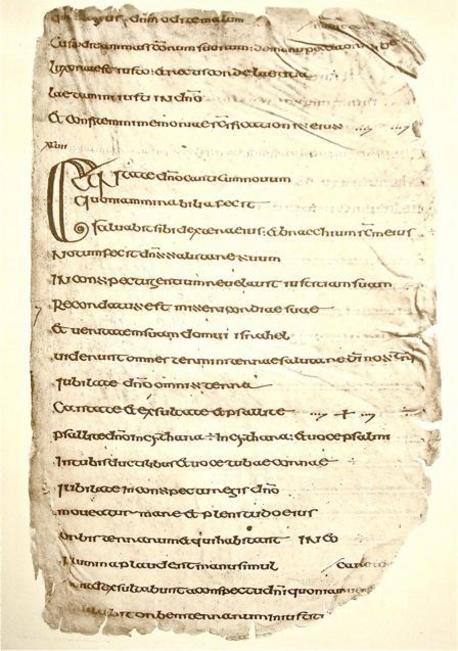 dnm odite malum
Custodit animas scorum suorum: de manu peccatorum
Lux orta est iusto: & rectis corde laetitia
laetamini iusti IN dno
& confitemini memoriae scificationis eius
Cantate dno canticum nouum
quoniam mirabilia fecit
saluabit sibi dextera eius: & bracchium scm eius
Notum fecit dns salutare suum
IN conspectu gentium reuelauit iustitiam suam
Recordatus est misericordiae suae
& ueritatem suam domui israhel
uiderunt omnes termini terrae salutare di nostri
iubilate dno omnis terra
Cantate & exsultate & psallite
psallite dno in cythara: In cythara: & uoce psalmi
In tubis ductilibus & uoce tubae corneae
iubilate in conspectu regis dno
moueatur mare & plenitudo eius
orbis terrarum & qui habitant IN eo
flumina plaudent manu simul
exsultabunt a conspectu dni quoniam
orbem terrarum